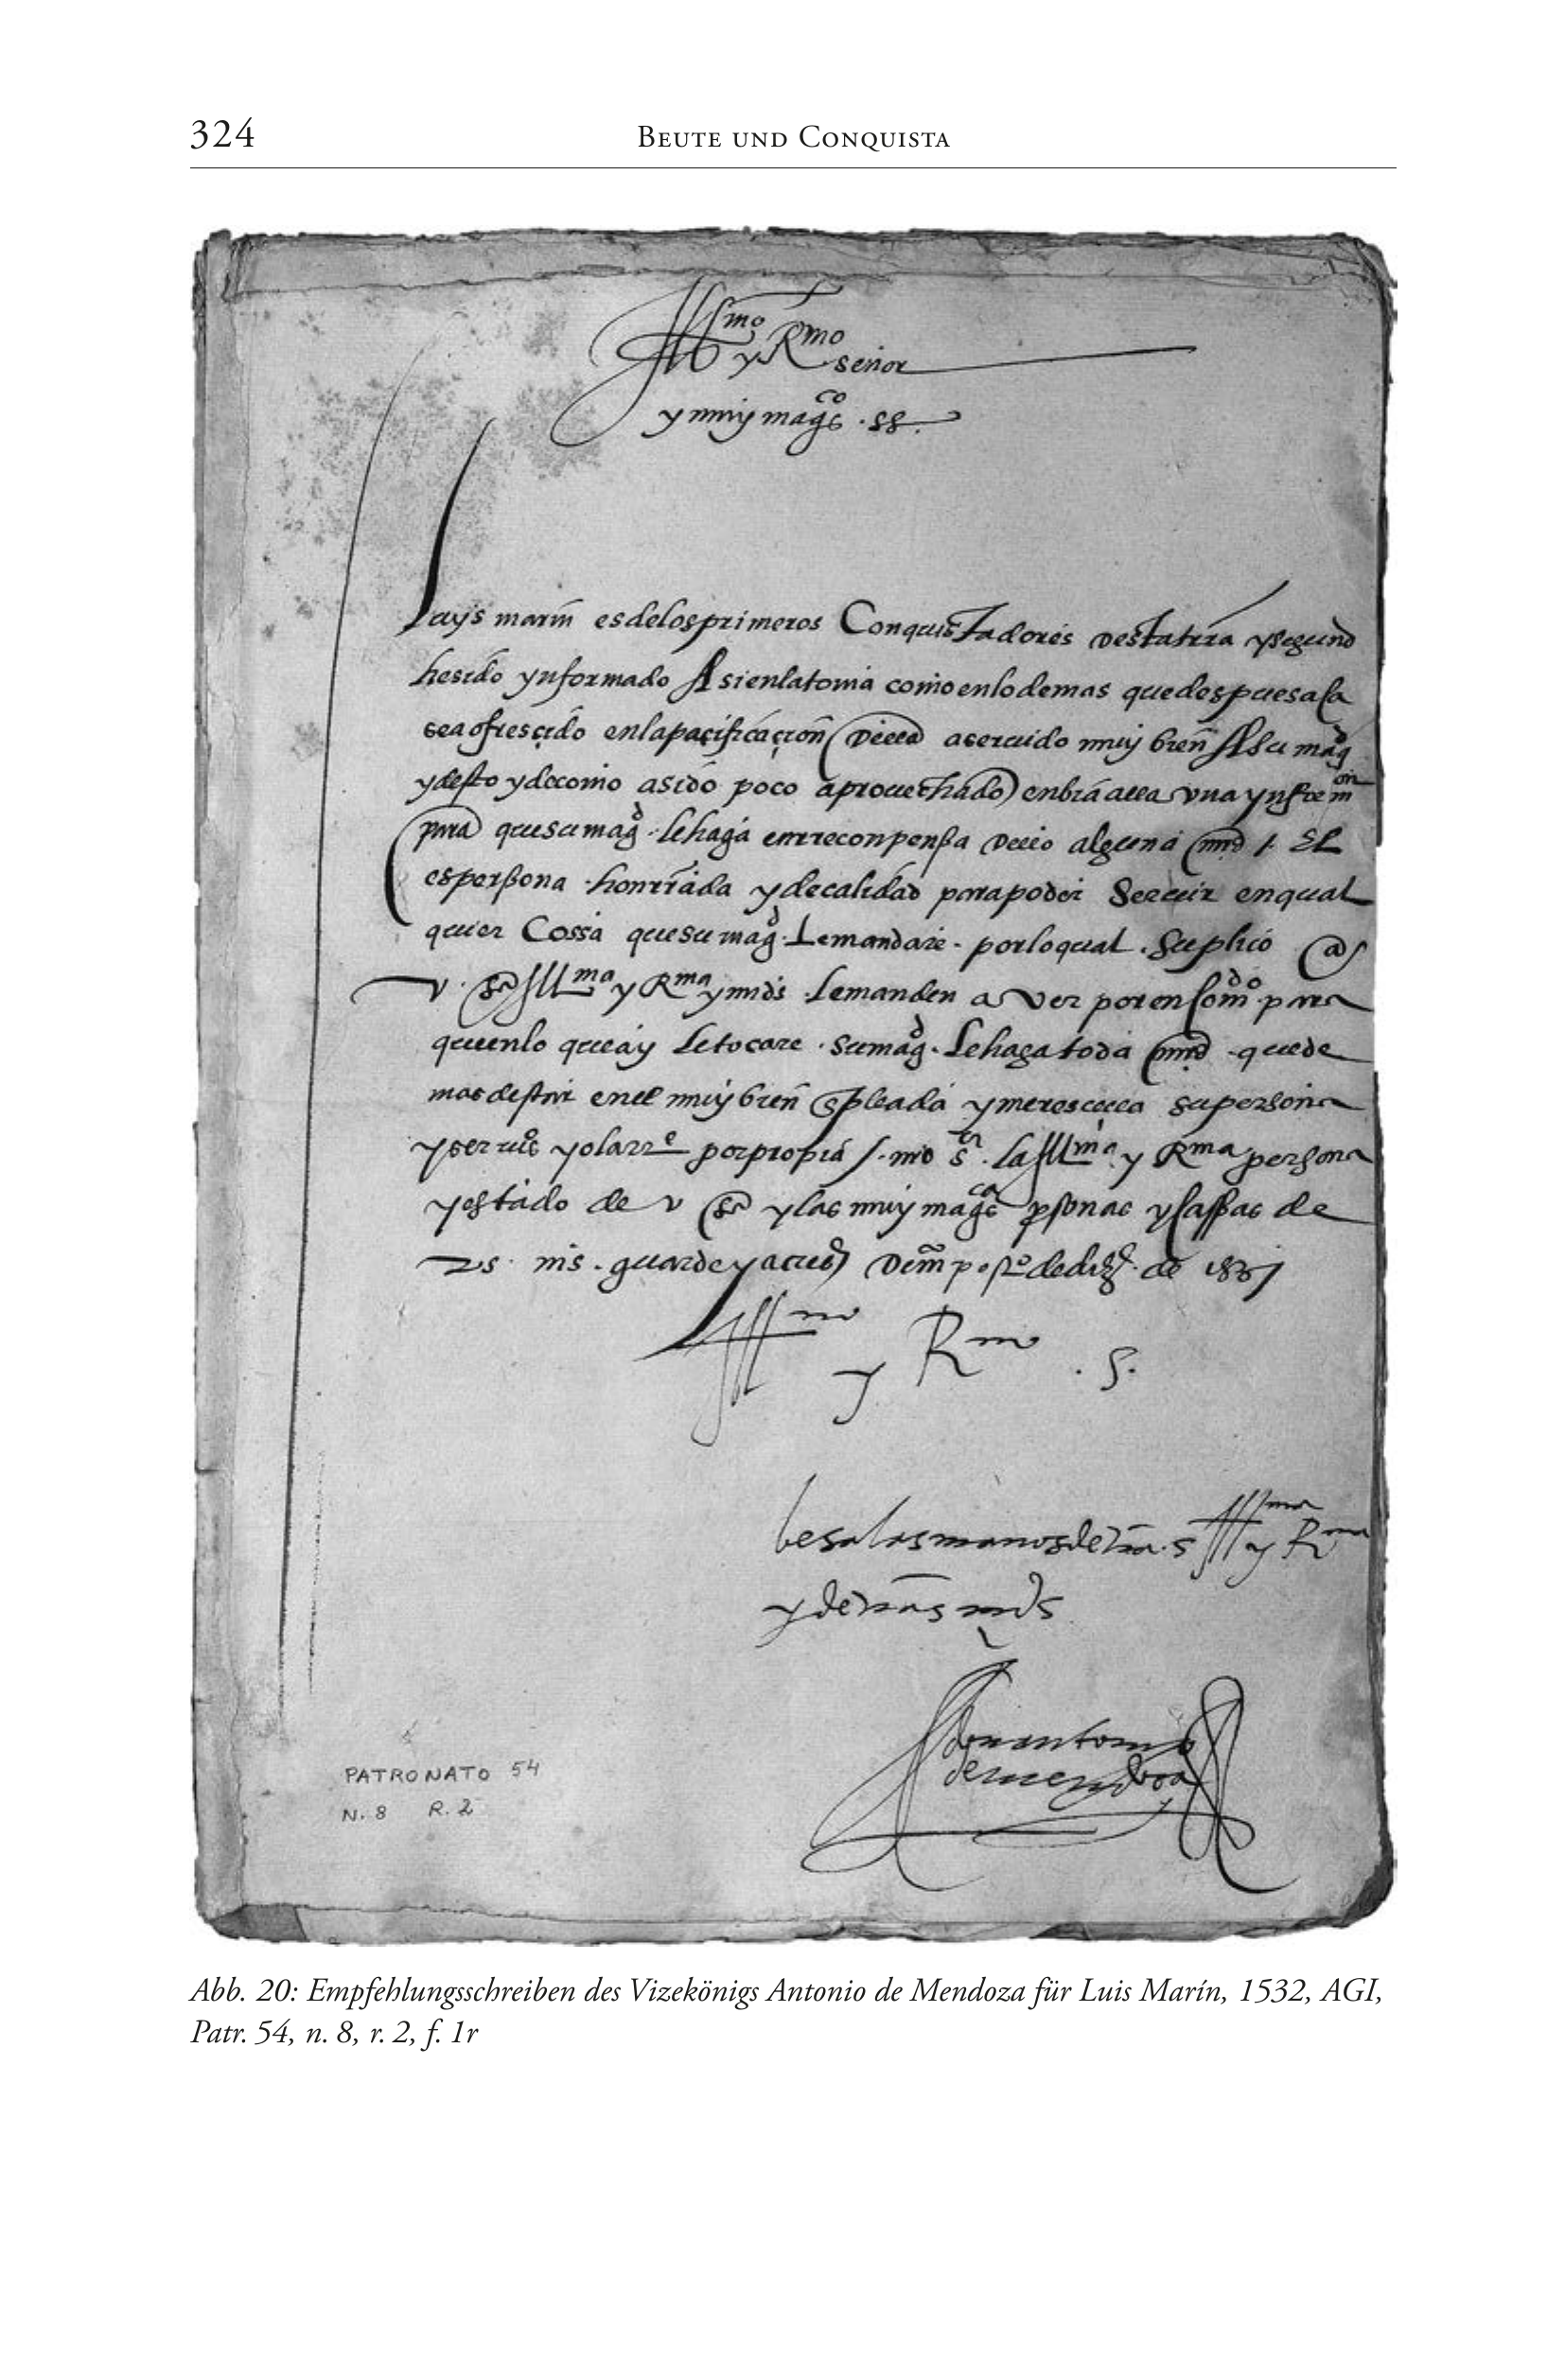 324 Beute und Conquista
Illmo y Rmo señor
y muy magco . ss.
luys marin es delos primeros Conquistadores desta trra y segund
he sido ynformado Asi en la toma como en lo demas que despues aca
se a ofresçido en la paçificaçion della a seruido muy bien A su magd
y desto y de como a sido poco aprouechado enbia alla vna ynformon
para que su magd. le haga en rreconpensa dello alguna mrd /. El
es persona honrrada y de calidad para poder Seruir en qual
quier Cossa que su magd. Le mandare. por lo qual. Suplico a
v. sa Illma y Rma y mrds. le manden aver por encomdo. para
quen lo que ay Le tocare. su magd. Le haga toda mrd. que de
mas destar en el muy bien enpleada y meresçella su persona
y seruiçios yo la rre por propia /. nro sor. la Illma. y Rma persona
y estado de v sa y las muy magcas personas y cassas de
vs. ms. guarde y acreçte De mexco postro de dize. de 1537
Illmo y Rmo . S.
besa las manos de vra. s Illma y Rma
y de vras mds
don antonio
de mendoça
PATRONATO 54
N. 8 R. 2
Abb. 20: Empfehlungsschreiben des Vizekönigs Antonio de Mendoza für Luis Marín, 1532, AGI,
Patr. 54, n. 8, r. 2, f. 1r